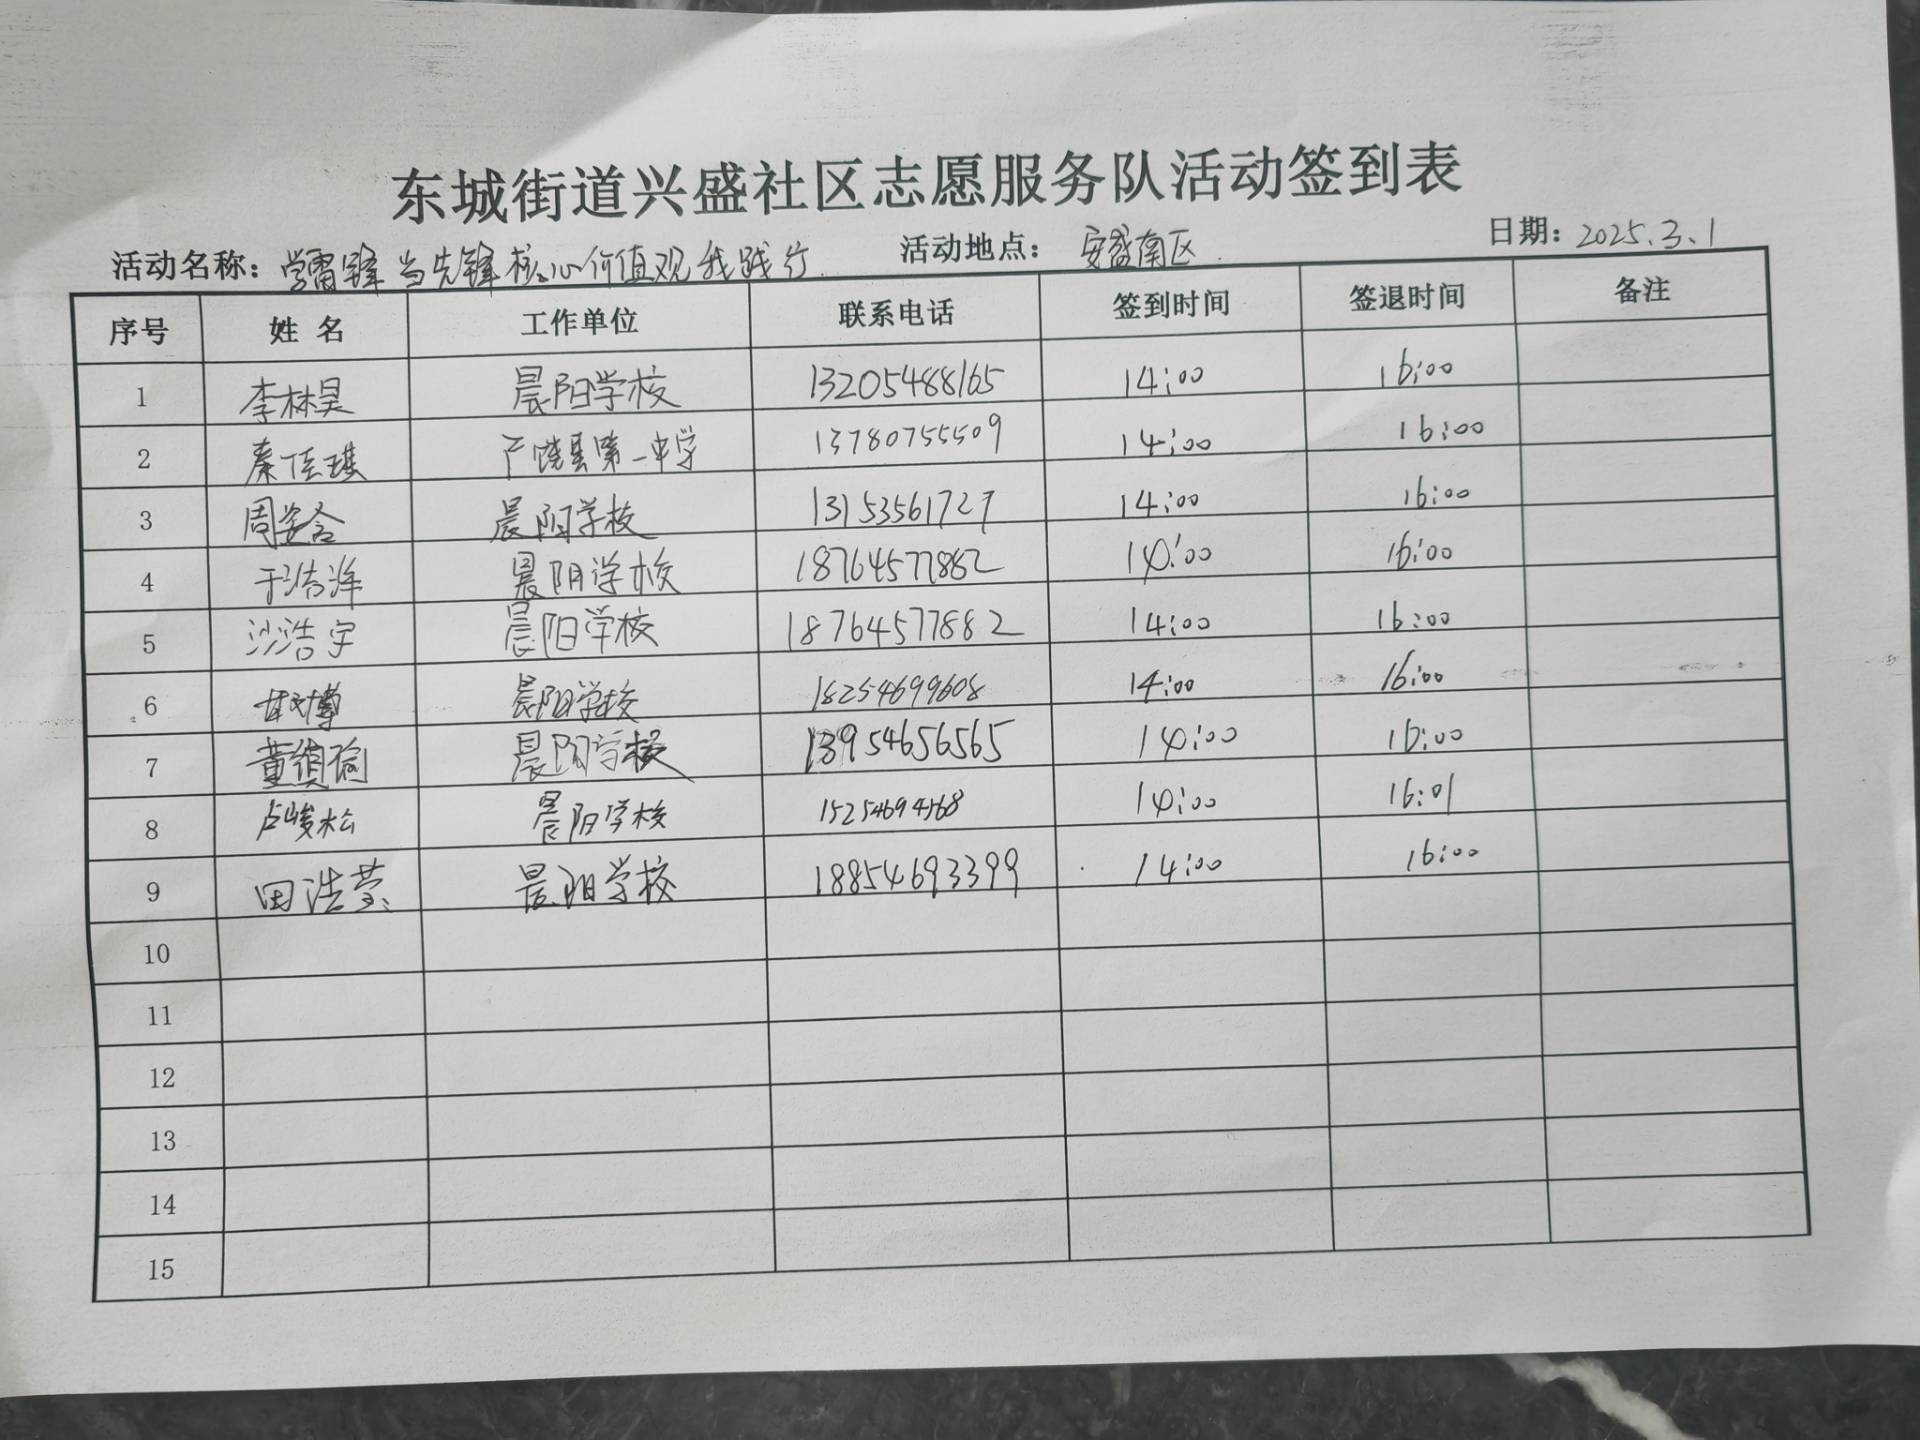 东城街道兴盛社区志愿服务队活动签到表
活动名称：学雷锋当先锋核心价值观我践行 活动地点：安盛南区 日期：2025.3.1
序号 姓 名 工作单位 联系电话 签到时间 签退时间 备注
1 李林昊 晨阳学校 13205488165 14:00 16:00
2 秦佳琪 广饶县第一中学 13780755509 14:00 16:00
3 周姿含 晨阳学校 13153561727 14:00 16:00
4 于浩洋 晨阳学校 18764577882 14:00 16:00
5 沙浩宇 晨阳学校 18764577882 14:00 16:00
6 晨阳学校 18254699608 14:00 16:00
7 晨阳学校 13954656565 14:00 16:00
8 卢峻松 晨阳学校 15254694568 14:00 16:01
9 田浩莹 晨阳学校 18854693399 14:00 16:00
10
11
12
13
14
15